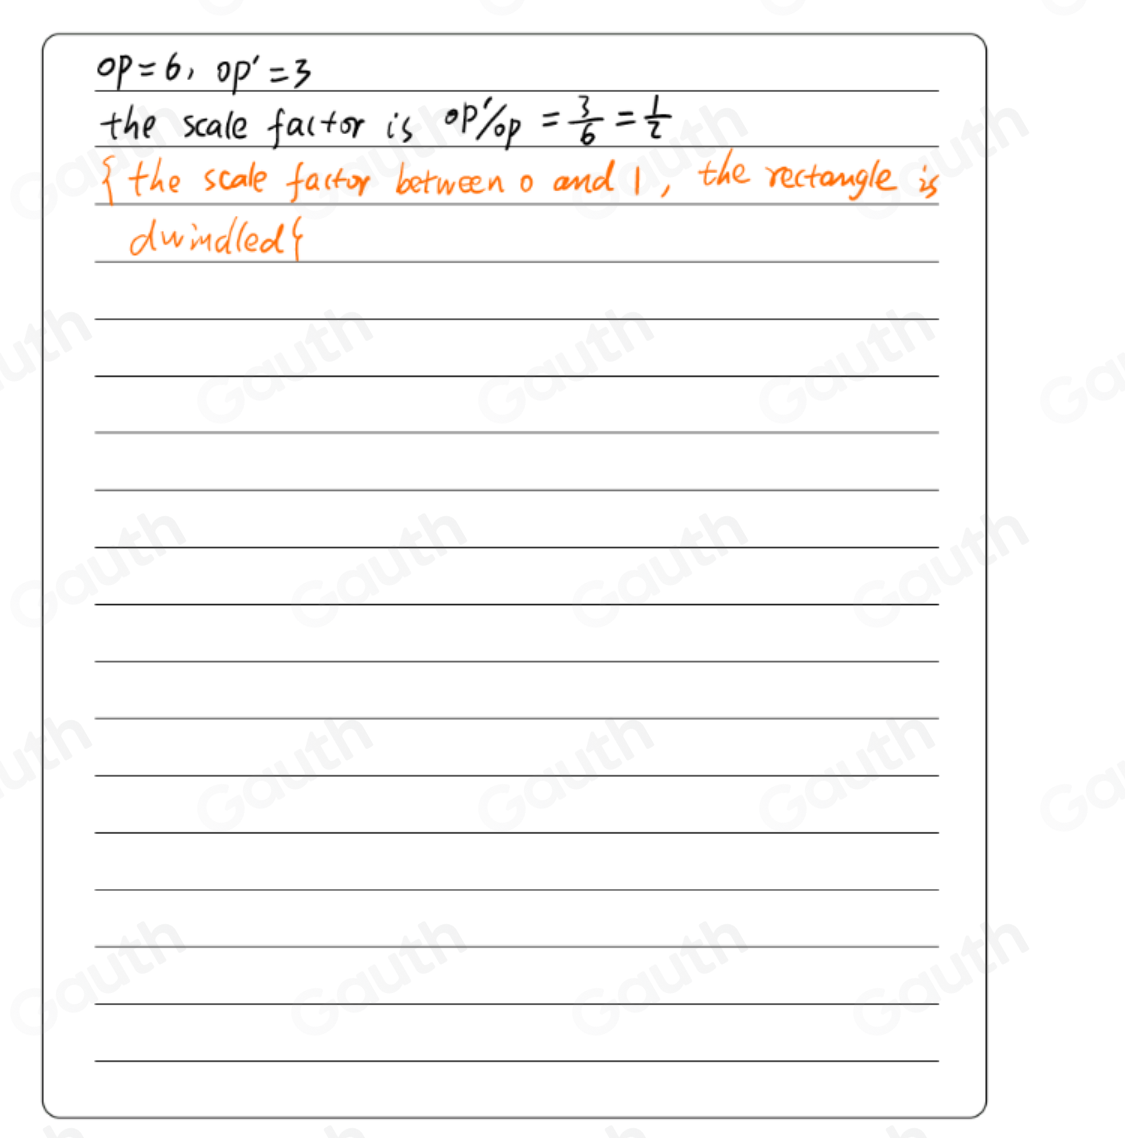 op=6, op'=3
the scale factor is op'/op = 3/6 = 1/2
{ the scale factor between 0 and 1, the rectangle is
dwindled {
Gauth